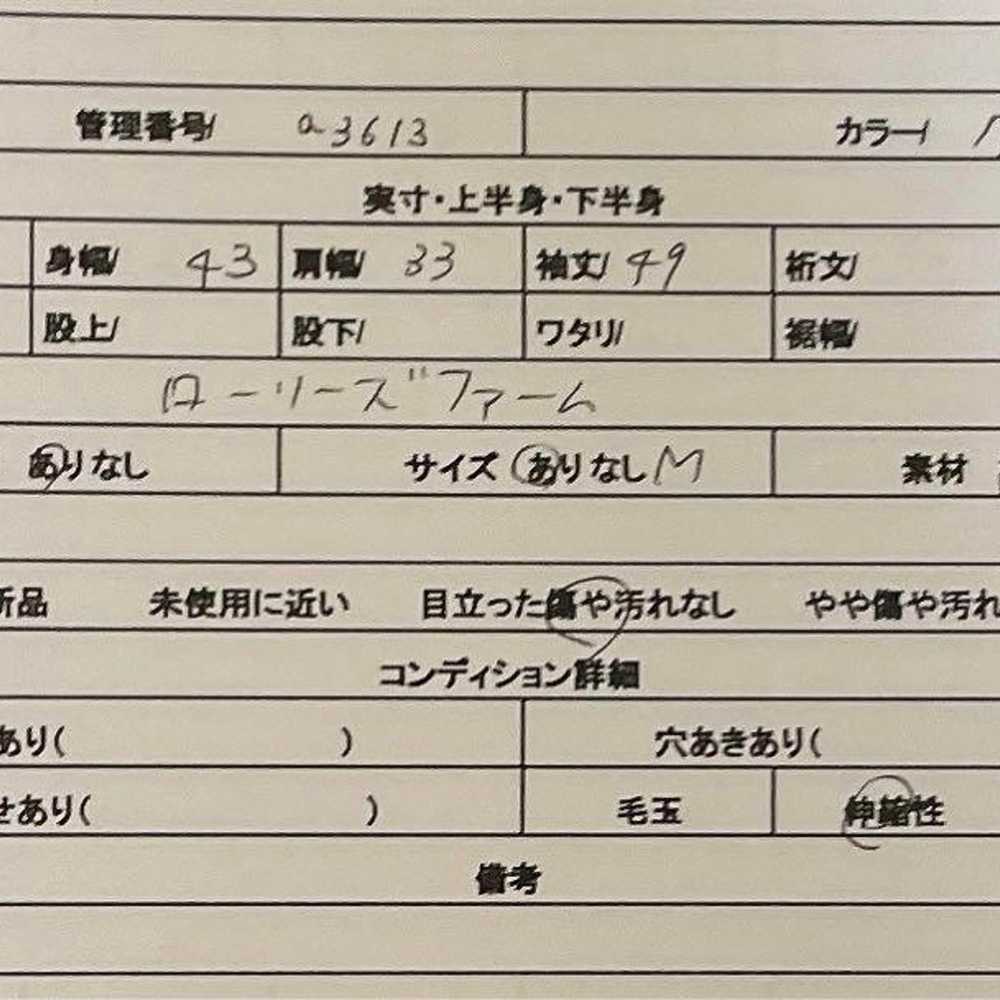 管理番号/ a3613 カラー/
実寸・上半身・下半身
身幅/ 43 肩幅/ 33 袖丈/ 49 裄文/
股上/ 股下/ ワタリ/ 裾幅/
ローリーズファーム
ありなし サイズ ありなし M 素材
新品 未使用に近い 目立った傷や汚れなし やや傷や汚れ
コンディション詳細
あり( ) 穴あきあり(
せあり( ) 毛玉 伸縮性
備考